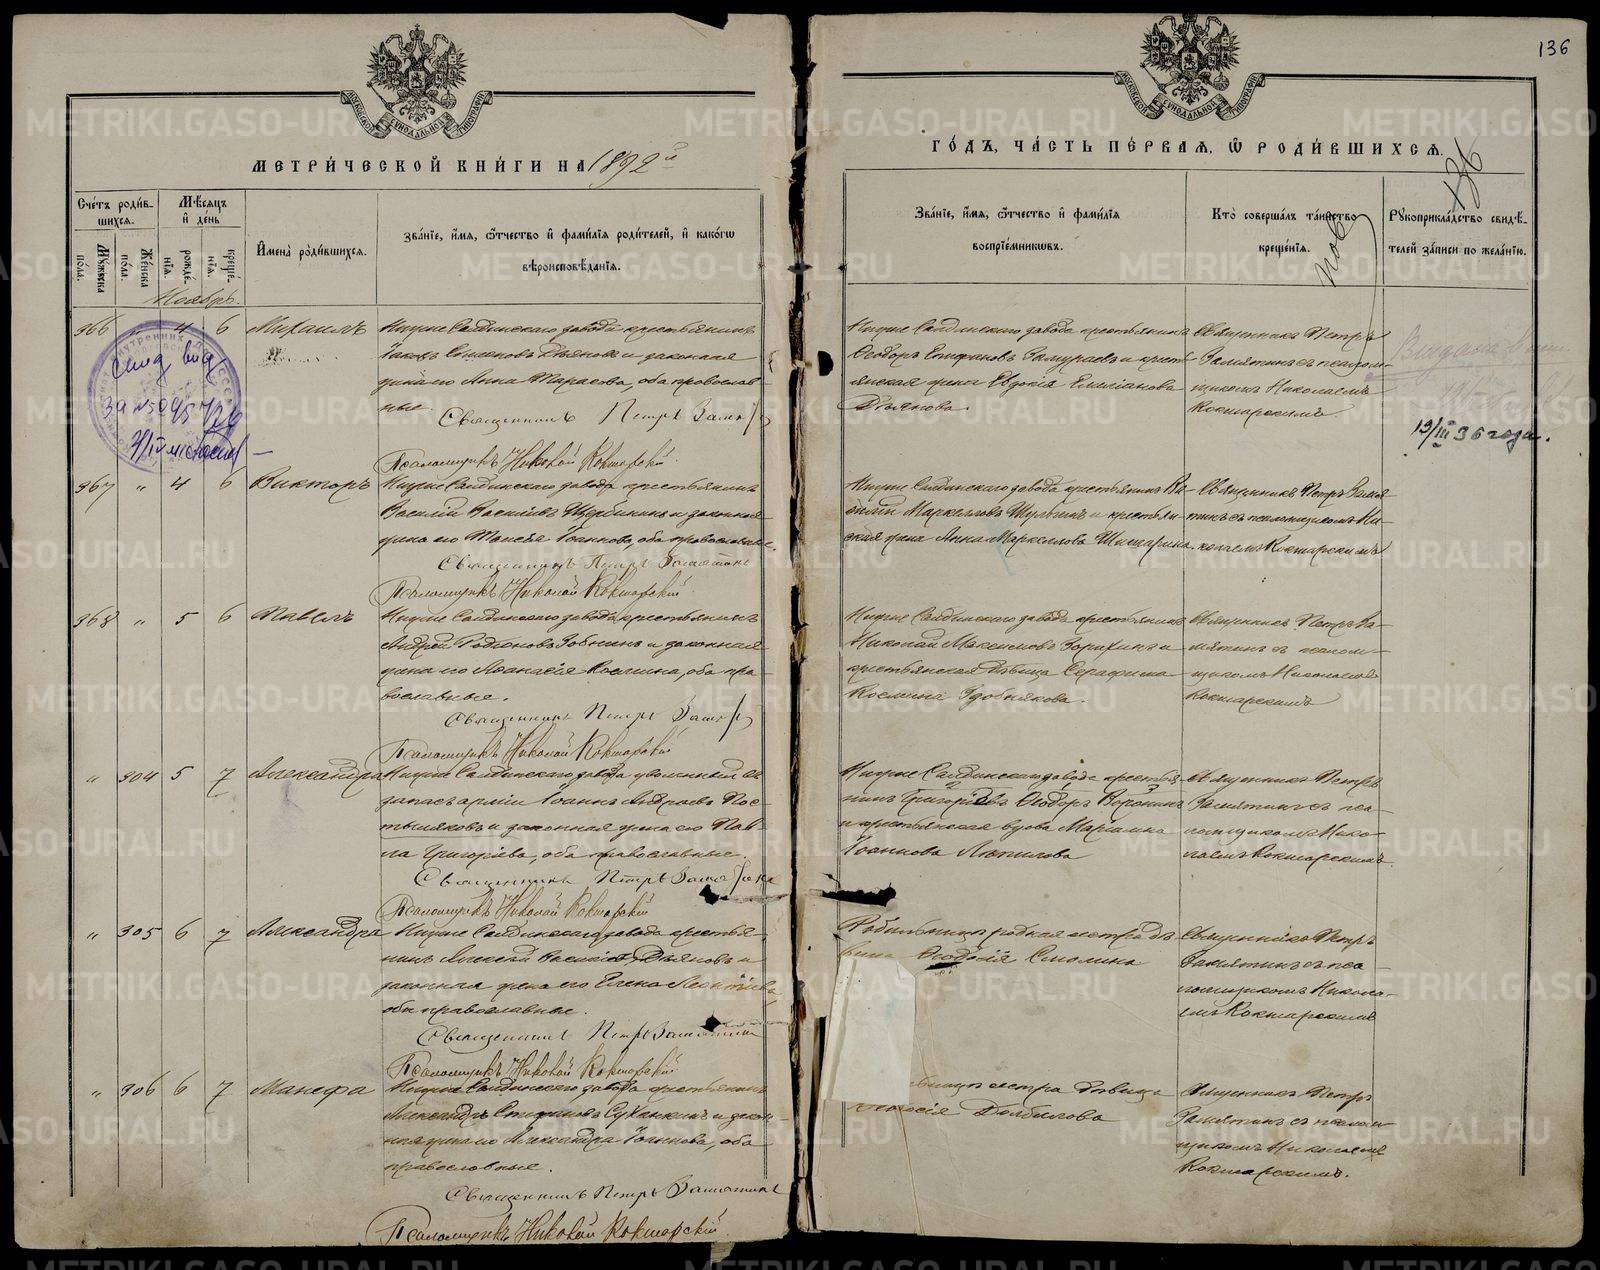 136
МЕТРИ́ЧЕСКОЙ КНИ́ГИ НА 1892й
ГО́ДЪ, ЧА́СТЬ ПЕ́РВАЯ, Ѡ РОДИ́ВШИХСѦ.
136
Счётъ роди́в-
шихся.
Мѣ́сяцъ
и де́нь
Му́жеска
по́ла.
Же́нска
по́ла.
рожде́-
нїя.
креще́-
нїя.
Имена̀ роди́вшихся.
Зва́нїе, и́мя, ѻ́тчество и фами́лїя роди́телей, и како́гѡ
вѣроисповѣ́данїя.
Зва́нїе, и́мя, ѻ́тчество и фами́лїя
воспрїе́мникѡвъ.
Кто̀ соверша́лъ та́инство
креще́нїя.
Рꙋкоприкла́дство свидѣ́-
телей за́писи по жела́нїю.
Ноябрь.
366 " 4 6 Михаилъ
Нижне Салдинскаго завода крестьянинъ
законная
жена его Анна Тарасова, оба православ-
ные.
Священникъ Петръ Замят
Псаломщикъ Николай Кокшарскій
Нижне Салдинскаго завода крестьянинъ
Ѳеодоръ Епифановъ Замураевъ и кресть-
янская жена Евдокія Емеліанова
Дьянова.
Священникъ Петръ
Замятинъ съ псалом-
щикомъ Николаемъ
Кокшарскимъ
Выдана
19/III 36 года.
367 " 4 6 Викторъ
Нижне Салдинскаго завода крестьянинъ
Василій Василіевъ Щербининъ и законная
жена его Таисія Іоаннова, оба православные.
Священникъ Петръ Замятинъ
Псаломщикъ Николай Кокшарскій
Нижне Салдинскаго завода крестьянинъ Ва-
силій Маркелловъ Шульгинъ и крестьян-
ская жена Анна Маркеллова
Священникъ Петръ Замя-
тинъ съ псаломщикомъ Ни-
колаемъ Кокшарскимъ
368 " 5 6 Павелъ
Нижне Салдинскаго завода крестьянинъ
Андрей Родіоновъ Зобнинъ и законная
жена его Аѳанасія Космина, оба пра-
вославные.
Священникъ Петръ Замят
Псаломщикъ Николай Кокшарскій
Нижне Салдинскаго завода крестьянинъ
Николай Максимовъ Зорихинъ и
крестьянская дѣвица Серафима
Космина
Священникъ Петръ За-
мятинъ съ псалом-
щикомъ Николаемъ
Кокшарскимъ
" 304 5 7 Александра
Нижне Салдинскаго завода уволенный въ
запасъ арміи Іоаннъ Андреевъ Пос-
тыляковъ и законная жена его Пав-
ла Григоріева, оба православные.
Священникъ Петръ Замятинъ
Псаломщикъ Николай Кокшарскій
Нижне Салдинскаго завода крестья-
нинъ Григоріевъ Ѳеодоръ Воронинъ
и крестьянская вдова Маріамна
Іоаннова Ляпилова
Священникъ Петръ
Замятинъ съ пса-
ломщикомъ Нико-
лаемъ Кокшарскимъ
" 305 6 7 Александра
Нижне Салдинскаго завода крестья-
нинъ Алексѣй Дьяновъ и
законная жена его Елена Леонтіева
оба православные.
Священникъ Петръ Замятинъ
Псаломщикъ Николай Кокшарскій
Родильницы родная сестра дѣ-
вица Ѳеодосія Смолина
Священникъ Петръ
Замятинъ съ пса-
ломщикомъ Никола-
емъ Кокшарскимъ
" 306 6 7 Манефа
Нижне Салдинскаго завода крестьянинъ
Александръ Стефановъ Суханкинъ и закон-
ная жена его Александра Іоаннова, оба
православные.
Священникъ Петръ Замятинъ
Псаломщикъ Николай Кокшарскій
сестра дѣвица
Долбилова
Священникъ Петръ
Замятинъ съ псалом-
щикомъ Николаемъ
Кокшарскимъ.
METRIKI.GASO-URAL.RU